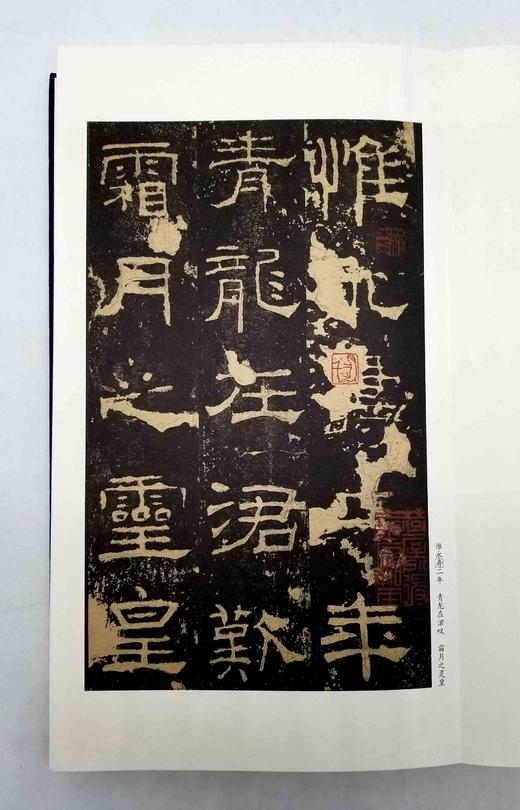 惟永壽二年
青龍在涒歎
霜月之靈皇
惟永寿二年 青龙在涒叹 霜月之灵皇